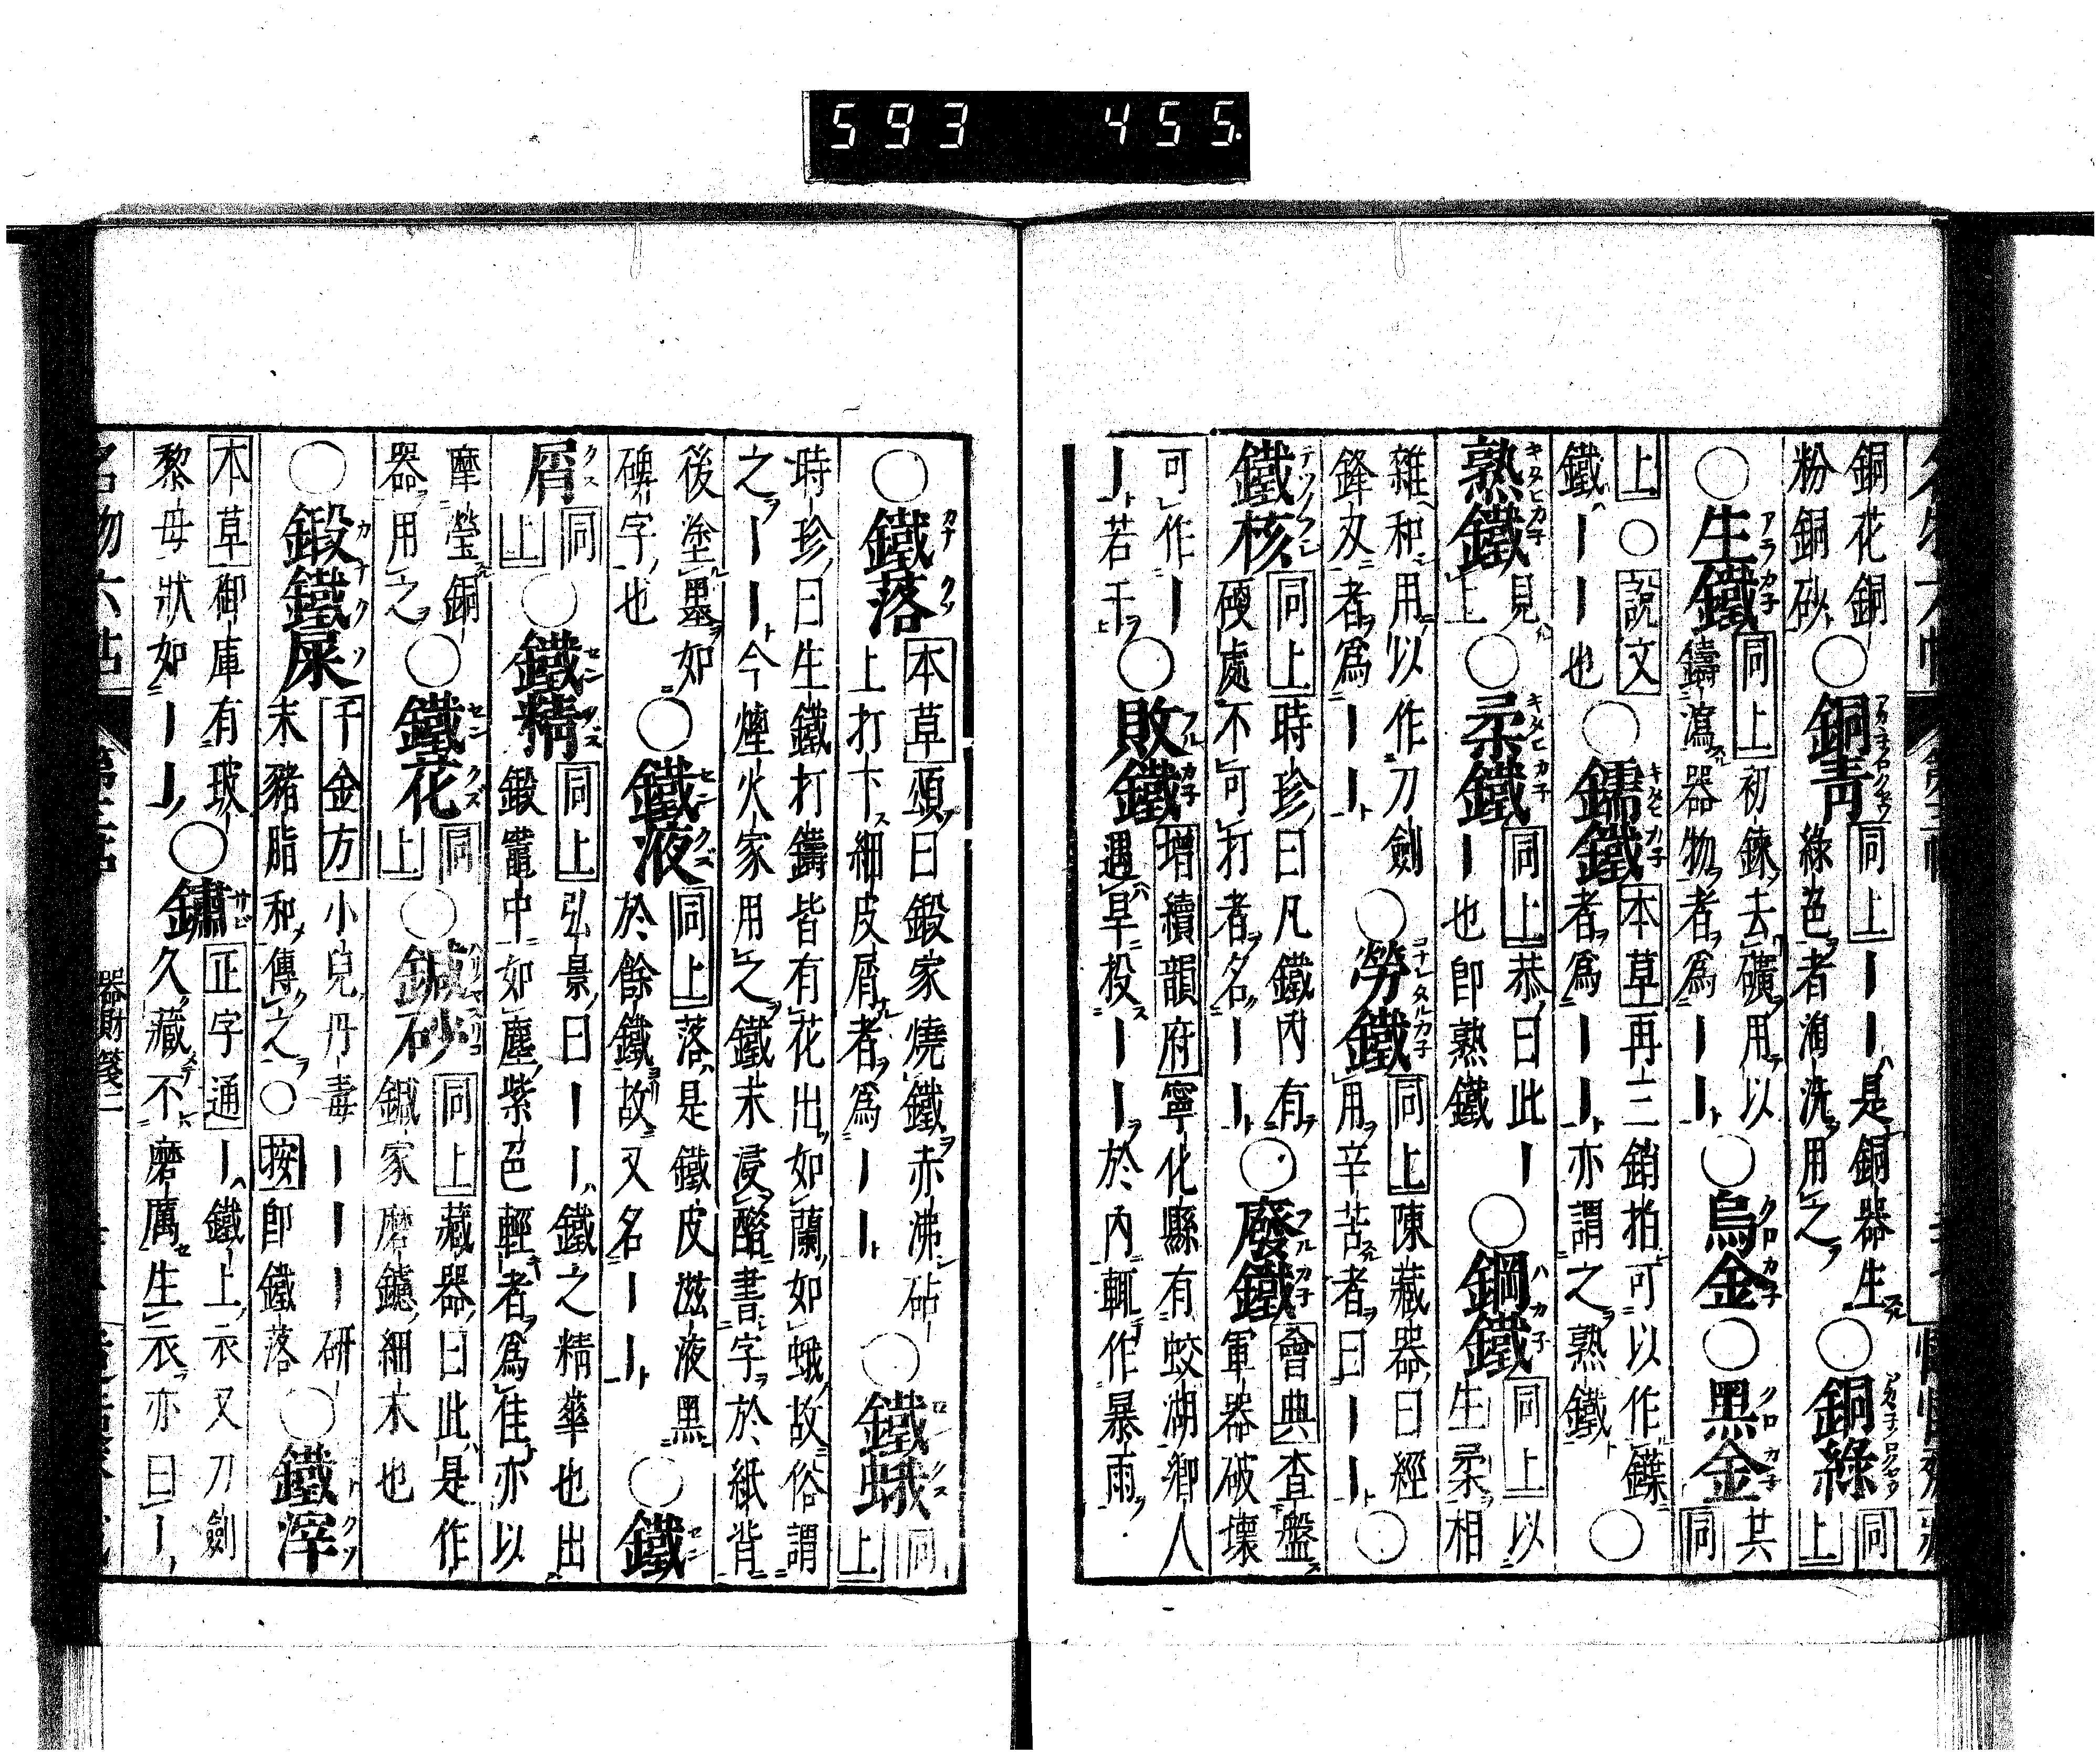 593 455.
銅花銅
粉銅砂
○銅青
同上
──是銅器生
綠色者淘洗用之
○銅綠
同上
○生鐵
同上
初鍊去礦用以
鑄瀉器物者爲──
○烏金○黑金
共同
上○說文
鐵──也
○鑐鐵
本草
再三銷拍可以作鍱
者爲──亦謂之熟鐵
○
熟鐵
見上
○柔鐵
同上
恭曰此─
─也卽熟鐵
○鋼鐵
同上
以生柔相
雜和用以作刀劍
鋒刃者爲──
○勞鐵
同上
陳藏器曰經
用辛苦者曰──
○
鐵核
同上
時珍曰凡鐵內有
硬處不可打者名──
○廢鐵
會典
查盤
軍器破壞
可作─
─若干
○敗鐵
增續韻府
寧化縣有蛟湖鄉人
遇旱投──於內輒作暴雨
○鐵落
本草
頌曰鍛家燒鐵赤沸砧
上打下細皮屑者爲──
○鐵蛾
同上
時珍曰生鐵打鑄皆有花出如蘭如蛾故俗謂
之──今煙火家用之鐵末浸醋書字於紙背
後塗墨如
碑字也
○鐵液
同上
落是鐵皮滋液黑
於餘鐵故又名──
○鐵
屑
同上
○鐵精
同上
弘景曰──鐵之精華也出
鍛竈中如塵紫色輕者爲佳亦以
摩瑩銅
器用之
○鐵花
同上
○鍼砂
同上
藏器曰此是作
鍼家磨鑢細末也
○鍛鐵屎
千金方
小兒丹毒───研
末豬脂和傅之○按卽鐵落
○鐵滓
本草
御庫有玻
黎母狀如──
○鏽
正字通
─鐵上衣又刀劍
久藏不磨厲生衣亦曰─
名物六帖
第三帖
器財箋二